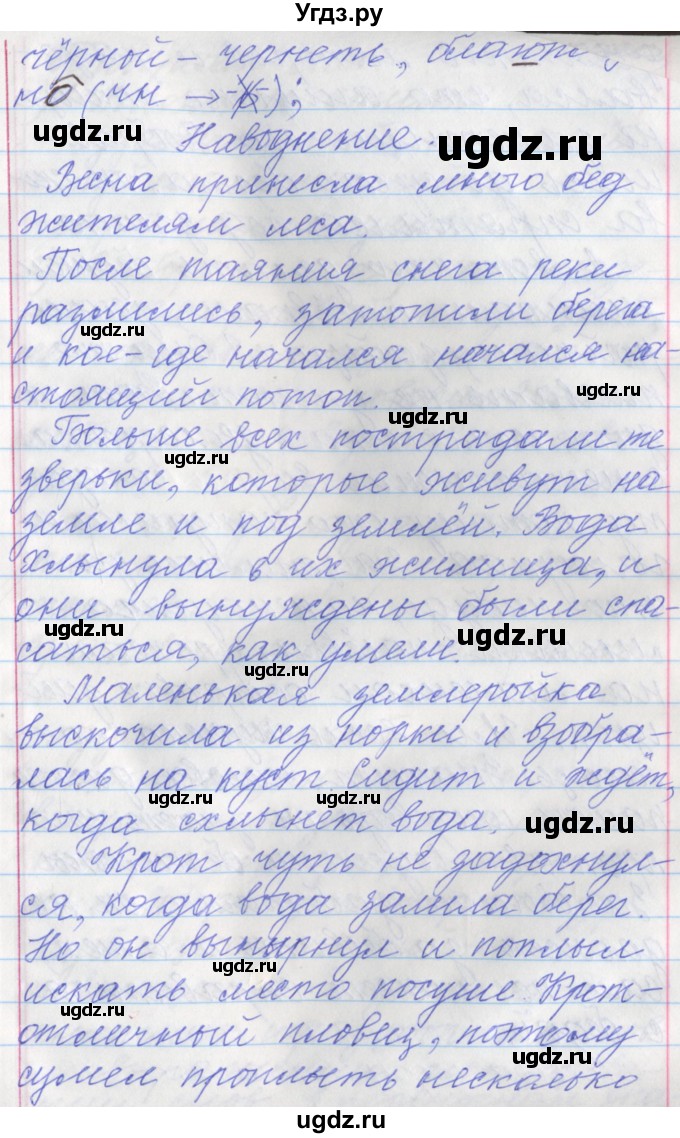 Угдз.ру
чёрный – чернеть, облают
но (чн → );
ugdz.ru
ugdz.ru
Наводнение.
Весна принесла много бед
ugdz.ru
жителям леса.
После таяния снега реки
разлились, затопили берега
ugdz.ru
и кое-где начался начался на-
стоящий потоп.
ugdz.ru
ugdz.ru
Больше всех пострадали те
ugdz.ru
зверьки, которые живут на
земле и под землёй. Вода
хлынула в их жилища, и
они вынуждены были спа-
ugdz.ru
ugdz.ru
саться, как умели.
ugdz.ru
Маленькая землеройка
выскочила из норки и взобра-
лась на куст Сидит и ждёт,
ugdz.ru
ugdz.ru
когда схлынет вода.
ugdz.ru
Крот чуть не задохнул-
ся, когда вода залила берег.
Но он вынырнул и поплыл
ugdz.ru
искать место посуше. Крот-
ugdz.ru
отличный пловец, поэтому
сумел проплыть несколько
ugdz.ru
ugdz.ru